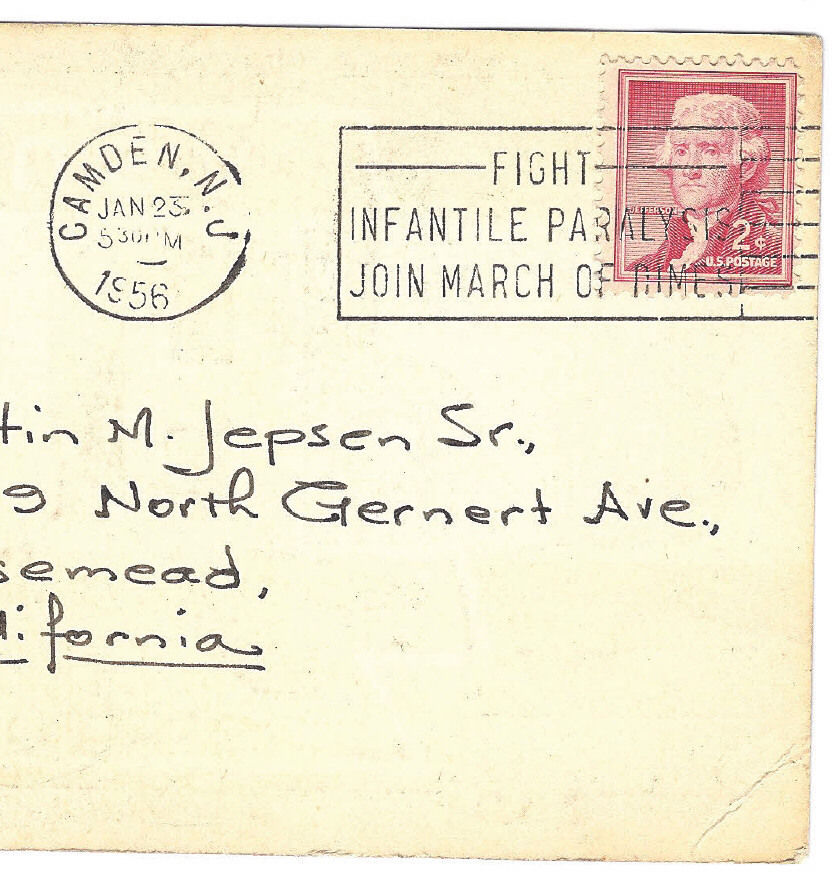 CAMDEN, N.J.
JAN 23
5 30 PM
1956
FIGHT
INFANTILE PARALYSIS
JOIN MARCH OF DIMES
2¢
U.S. POSTAGE
tin M. Jepsen Sr.,
9 North Gernert Ave.,
semead,
lifornia